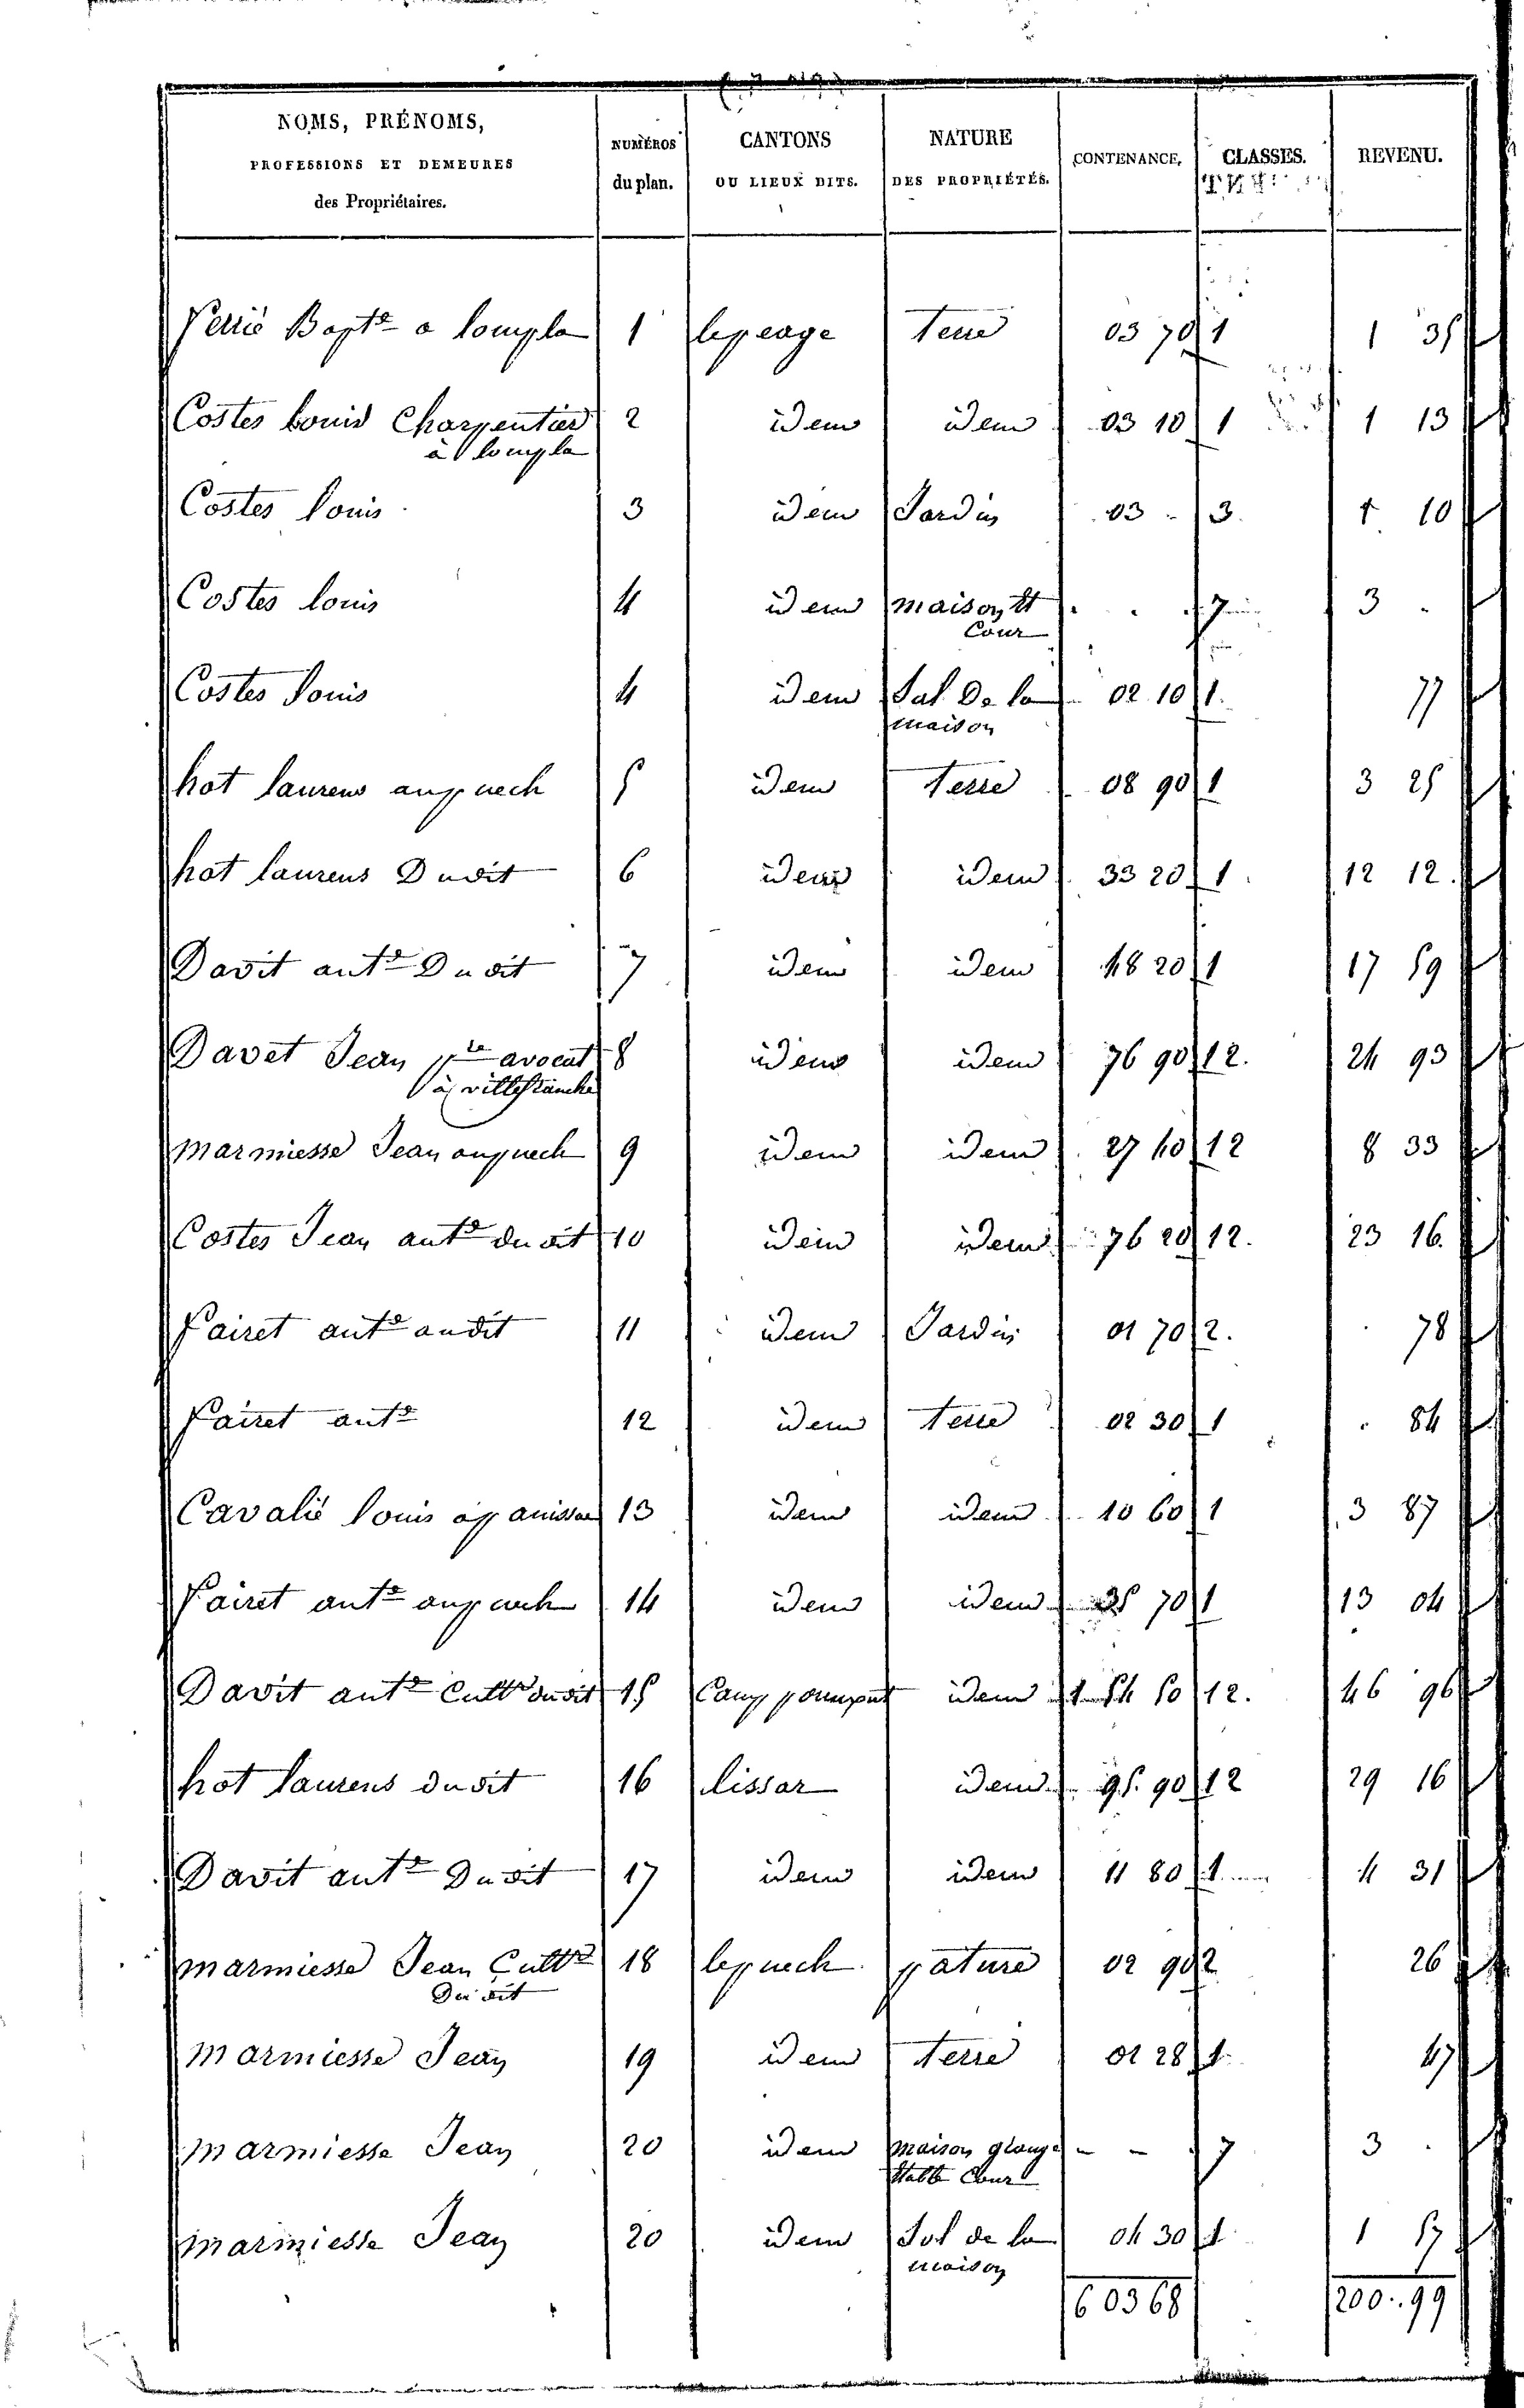 NOMS, PRÉNOMS,
PROFESSIONS ET DEMEURES
des Propriétaires.
NUMÉROS
du plan.
CANTONS
OU LIEUX DITS.
NATURE
DES PROPRIÉTÉS.
CONTENANCE.
CLASSES.
REVENU.
Perié Bapte a loupla 1 lepeage terre 03 70 1 1 35
Costes louis Charpentier 2 idem idem 03 10 1 1 13
à loupla
Costes louis 3 idem Jardin 03 - 3 1 10
Costes louis 4 idem maison et . . 7 3 .
Cour
Costes louis 4 idem Sol De la 02 10 1 77
maison
hot laurens aupuech 5 idem terre 08 90 1 3 25
hot laurens Dudit 6 idem idem 33 20 1 12 12
Davit ante Dudit 7 idem idem 48 20 1 17 59
Davet Jean pre avocat 8 idem idem 76 90 12 24 93
à villefranche
marmiesse Jean aupuech 9 idem idem 27 40 12 8 33
Costes Jean ante dudit 10 idem idem 76 20 12 23 16
Pairet ante audit 11 idem Jardin 01 70 2 . 78
Pairet ante 12 idem terre 02 30 1 . 84
Cavalié louis a panissac 13 idem idem 10 60 1 3 87
Pairet ante aupuech 14 idem idem 35 70 1 13 04
Davit ante Cultr dudit 15 Camp idem 1 54 50 12 46 96
hot laurens dudit 16 lissar idem 95 90 12 29 16
Davit ante Dudit 17 idem idem 11 80 1 4 31
marmiesse Jean Cultr 18 lepuech pature 02 90 2 26
Du dit
marmiesse Jean 19 idem terre 01 28 1 47
marmiesse Jean 20 idem maison grange - - 7 3 .
Stable Cour
marmiesse Jean 20 idem Sol de la 04 30 1 1 57
maison
6 03 68 200..99